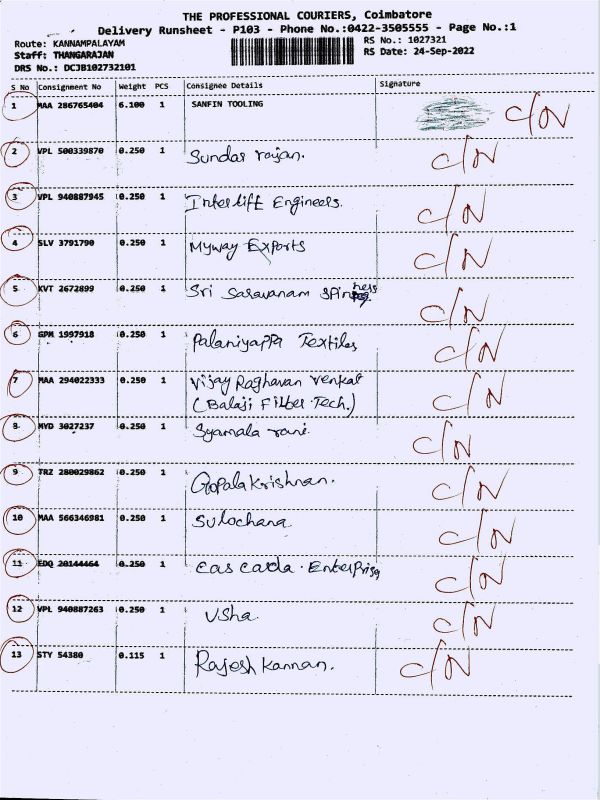 THE PROFESSIONAL COURIERS, Coimbatore
Delivery Runsheet - P103 - Phone No.:0422-3505555 - Page No.:1
Route: KANNAMPALAYAM RS No.: 1027321
Staff: THANGARAJAN RS Date: 24-Sep-2022
DRS No.: DCJB102732101
S No Consignment No Weight PCS Consignee Details Signature
1 MAA 286765404 6.100 1 SANFIN TOOLING C/N
2 VPL 500339870 0.250 1 Sundar rajan. C/N
3 VPL 940887945 0.250 1 Interlift Engineers. C/N
4 SLV 3791790 0.250 1 Myway Exports C/N
5 KVT 2672899 0.250 1 Sri Saravanam C/N
6 GPM 1997918 0.250 1 Palaniyappa Textiles C/N
7 MAA 294022333 0.250 1 Vijay Raghavan Venkat C/N
(Balaji Filber Tech.)
8 MYD 3027237 0.250 1 Syamala rani. C/N
9 TRZ 280029862 0.250 1 Gopala Krishnan. C/N
10 MAA 566346981 0.250 1 Sulochana C/N
11 EDQ 20144464 0.250 1 Enterprises C/N
12 VPL 940887263 0.250 1 Usha. C/N
13 STY 54380 0.115 1 Rajesh Kannan. C/N